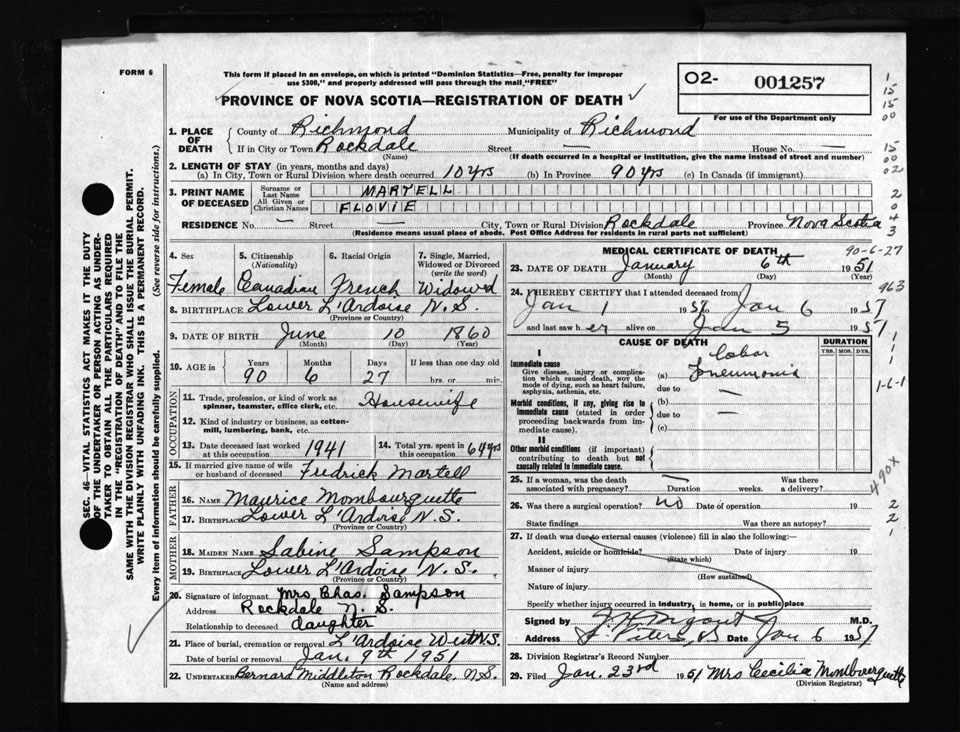 FORM 6
This form if placed in an envelope, on which is printed "Dominion Statistics—Free, penalty for improper
use $300," and properly addressed will pass through the mail "FREE"
PROVINCE OF NOVA SCOTIA—REGISTRATION OF DEATH
02- 001257
For use of the Department only
1. PLACE OF DEATH
County of Richmond Municipality of Richmond
If in City or Town Rockdale Street — House No. —
(Name) (If death occurred in a hospital or institution, give the name instead of street and number)
2. LENGTH OF STAY (in years, months and days)
(a) In City, Town or Rural Division where death occurred 10 yrs (b) In Province 90 yrs (c) In Canada (if immigrant)
3. PRINT NAME OF DECEASED
Surname or Last Name MARTELL
All Given or Christian Names FLOVIE
RESIDENCE No. — Street — City, Town or Rural Division Rockdale Province Nova Scotia
(Residence means usual place of abode. Post Office Address for residents in rural parts not sufficient)
4. Sex 5. Citizenship (Nationality) 6. Racial Origin 7. Single, Married, Widowed or Divorced (write the word)
Female Canadian French Widowed
8. BIRTHPLACE Lower L'Ardoise N.S.
(Province or Country)
9. DATE OF BIRTH June 10 1860
(Month) (Day) (Year)
10. AGE in Years Months Days If less than one day old
90 6 27 hrs. or min.
OCCUPATION
11. Trade, profession, or kind of work as spinner, teamster, office clerk, etc. Housewife
12. Kind of industry or business, as cotton-mill, lumbering, bank, etc.
13. Date deceased last worked at this occupation 1941 14. Total yrs. spent in this occupation
15. If married give name of wife or husband of deceased Fedrick Martell
FATHER
16. NAME Maurice Mombourquette
17. BIRTHPLACE Lower L'Ardoise N.S.
(Province or Country)
MOTHER
18. MAIDEN NAME Sabine Sampson
19. BIRTHPLACE Lower L'Ardoise N.S.
(Province or Country)
20. Signature of informant Mrs Chas. Sampson
Address Rockdale N.S.
Relationship to deceased daughter
21. Place of burial, cremation or removal L'Ardoise West N.S.
Date of burial or removal Jan. 9th 1951
22. UNDERTAKER Bernard Middleton Rockdale, N.S.
(Name and address)
MEDICAL CERTIFICATE OF DEATH 90-6-27
23. DATE OF DEATH January 6th 1951
(Month) (Day) (Year)
24. I HEREBY CERTIFY that I attended deceased from
Jan 1 1951 to Jan 6 1951
and last saw her alive on Jan 5 1951
963
CAUSE OF DEATH DURATION
YRS. MOS. DYS.
I
Immediate cause
Give disease, injury or complication which caused death, not the mode of dying, such as heart failure, asphyxia, asthenia, etc.
(a) Lobar Pneumonia
due to —
Morbid conditions, if any, giving rise to immediate cause (stated in order proceeding backwards from immediate cause).
(b)
due to —
(c)
1-6-1
II
Other morbid conditions (if important) contributing to death but not causally related to immediate cause.
490X
25. If a woman, was the death associated with pregnancy? — Duration weeks. Was there a delivery?
26. Was there a surgical operation? no Date of operation 19
State findings Was there an autopsy?
27. If death was due to external causes (violence) fill in also the following:
Accident, suicide or homicide? Date of injury 19
(State which)
Manner of injury
(How sustained)
Nature of injury
Specify whether injury occurred in Industry, in home, or in public place
Signed by M.D.
Address St Peters, NS Date Jan 6 1951
28. Division Registrar's Record Number
29. Filed Jan. 23rd 1951 Mrs Cecilia Mombourquette
(Division Registrar)
SEC. 46—VITAL STATISTICS ACT MAKES IT THE DUTY
OF THE UNDERTAKER OR PERSON ACTING AS UNDER-
TAKER TO OBTAIN ALL THE PARTICULARS REQUIRED
IN THE "REGISTRATION OF DEATH" AND TO FILE THE
SAME WITH THE DIVISION REGISTRAR WHO SHALL ISSUE THE BURIAL PERMIT.
WRITE PLAINLY WITH UNFADING INK. THIS IS A PERMANENT RECORD.
Every item of information should be carefully supplied. (See reverse side for instructions.)
1
15
15
00
15
00
02
2
0
4
3
1
1
1
2
2
1